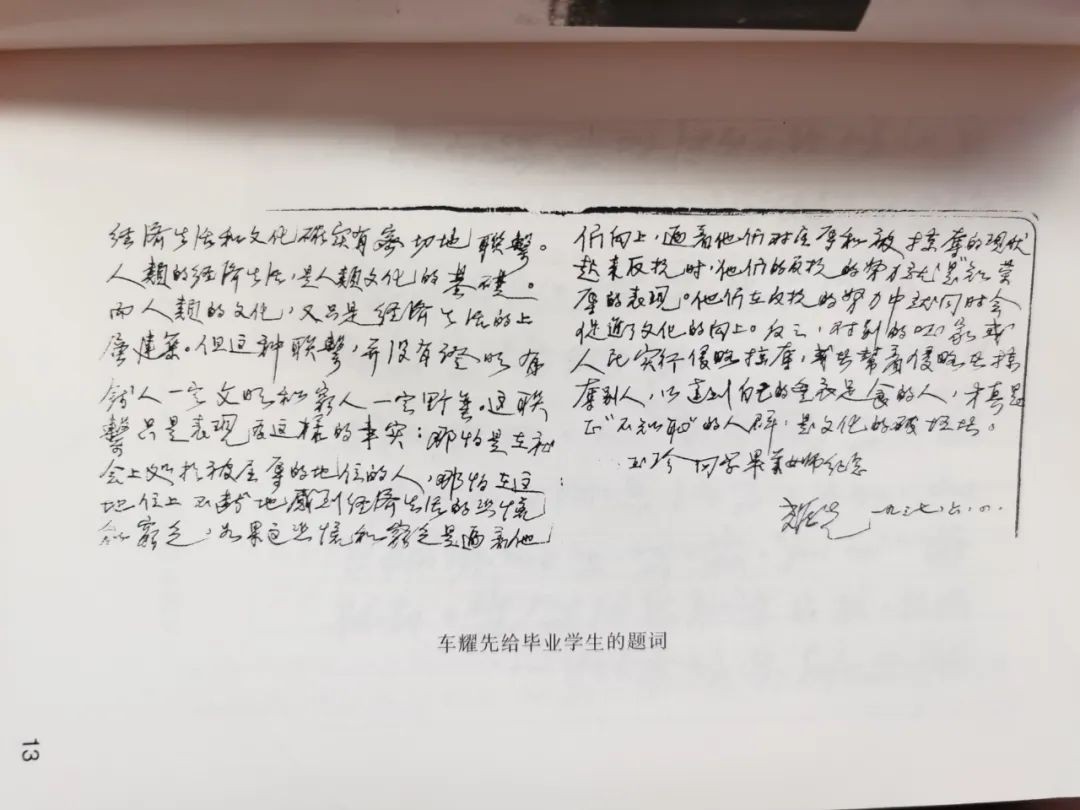 经济生活和文化确实有密切地联繫。
人類的经济生活,是人類文化的基礎。
而人類的文化,又只是经济生活的上
层建築。但这种联繫,并没有说明有
錢人一定文明和窮人一定野蛮。这联
繫只是表现在这样的事实:那怕是在社
会上处於被压摩的地位的人,那怕在这
地位上不断地感到经济生活的恐慌
和窮乏,如果这恐慌和窮乏是逼着他
们向上,逼着他们对压摩和被揉摩的现状
起来反抗时,他们的反抗的努力就是"知荣
辱"的表现。他们在反抗的努力中就同时会
促進了文化的向上。反之,对别的国家或
人民实行侵略揉摩,或者幫着侵略者揉
摩别人,以达到自己的豊衣足食的人,才真是
"不知耻"的人群,是文化的破坏者。
玉珍同学畢業女师纪念
耀先 一九三七、六、
车耀先给毕业学生的题词
13